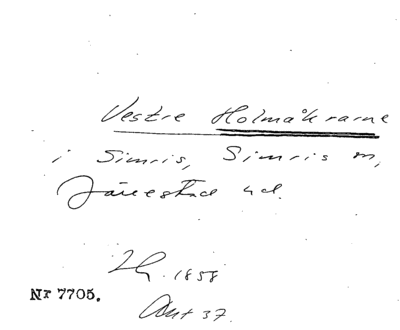 Vestre Holmåkrarne
i Simris, Simris sn,
Järestad hd.
Lh. 1858
Akt 37.
Nr 7705.